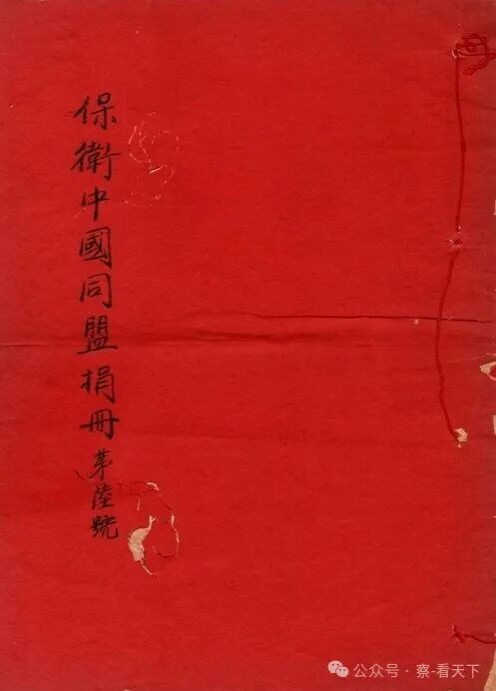 保衛中國同盟捐冊第陸號
公众号 · 察-看天下